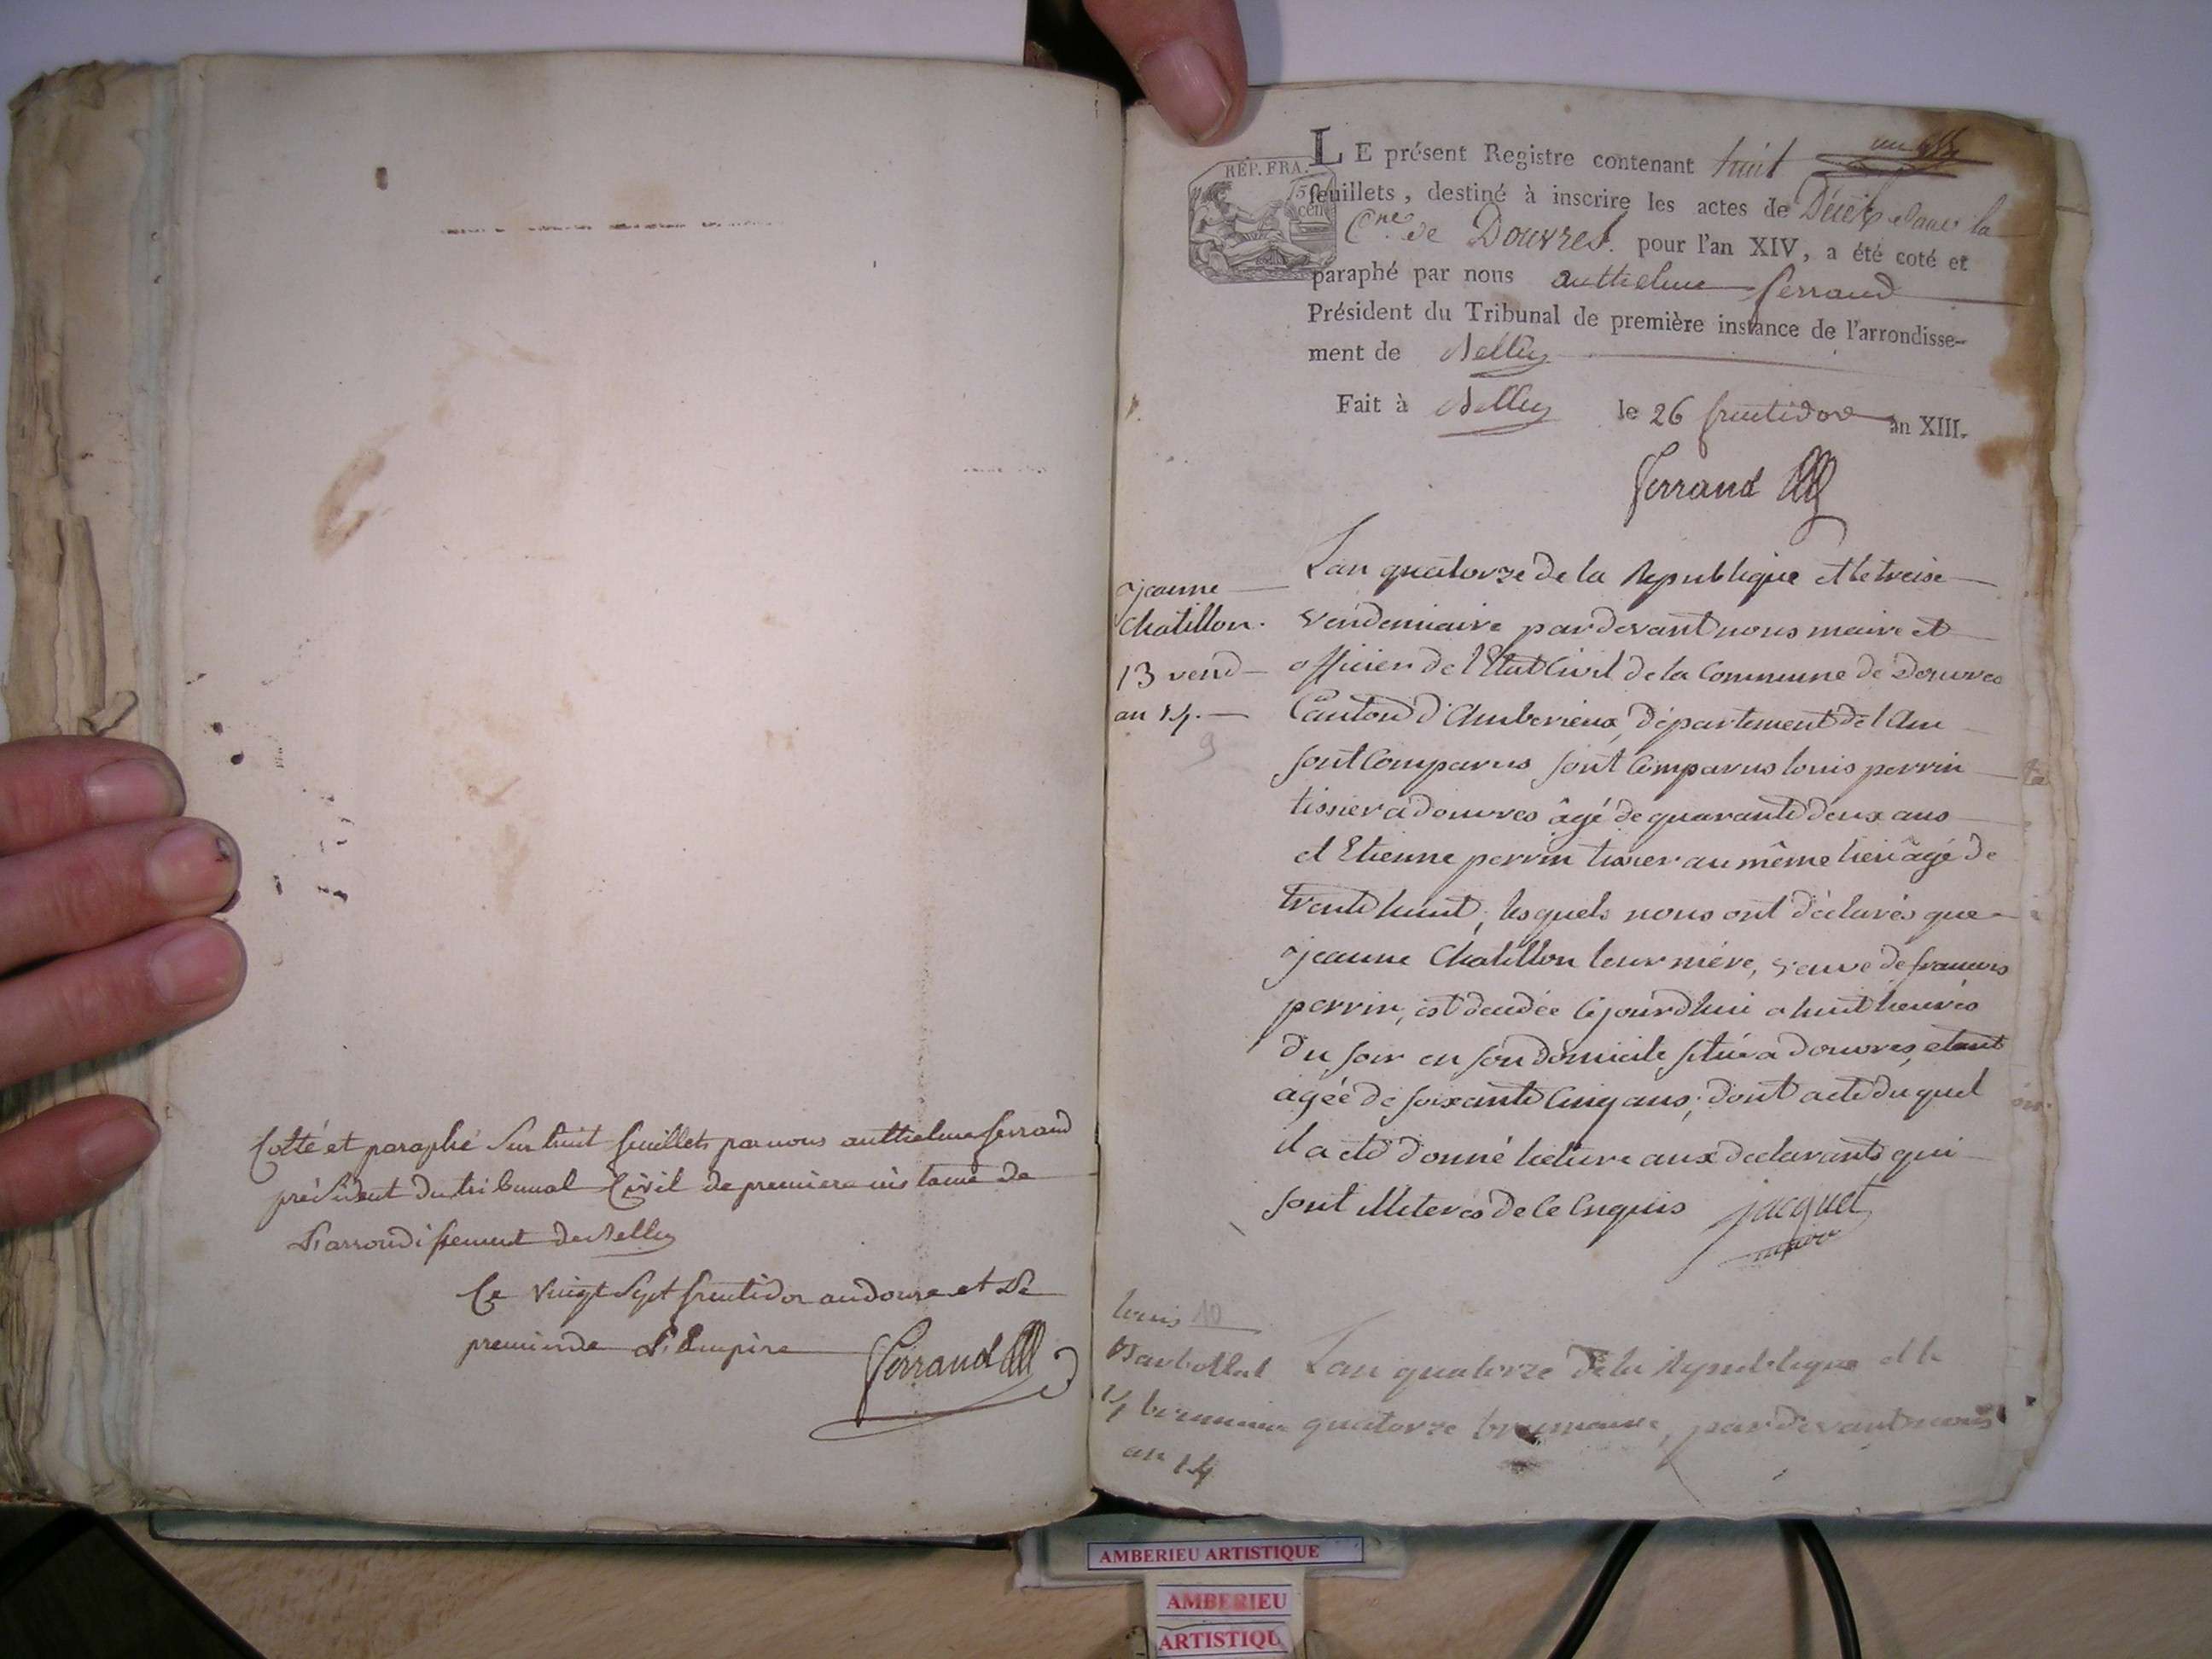 Cotté et paraphé Sur huit feuillets par nous anthelme ferrand
président du tribunal Civil de premiere instance de
L'arrondissement de Belley
Ce vingt Sept fructidor an douze et Le
premier de L'Empire
ferrand
RÉP. FRA.
5
cen
LE présent Registre contenant huit
feuillets, destiné à inscrire les actes de Décès dans la
Cne. de Douvres. pour l'an XIV, a été coté et
paraphé par nous anthelme ferrand
Président du Tribunal de première instance de l'arrondisse-
ment de Belley
Fait à Belley le 26 fructidor an XIII.
ferrand
jeanne
Chatillon.
13 vend
an 14.
9
Lan quatorze de la Republique et le treise
vendemiaire pardevant nous maire et
officier de l'Etat Civil de la Commune de Douvres
Canton d'Amberieux, département de l'Ain
sont Comparus sont Comparus louis perrin
tissier a douvres âgé de quarante deux ans
et Etienne perrin tissier au même lieu âgé de
trente huit, lesquels nous ont déclarés que
jeanne Chatillon leur mére, veuve de francois
perrin, est decedée cejourdhui a huit heures
du soir en son domicile situé a douvres, etant
agée de soixante Cinq ans; dont acte duquel
il a eté donné lecture aux declarants qui
sont illiterés de ce Enquis jacquet
maire
louis 10
Barbollat
14 brumaire
an 14
Lan quatorze de la Republique et le
quatorze brumaire, pardevant nous
AMBERIEU ARTISTIQUE
AMBERIEU
ARTISTIQU